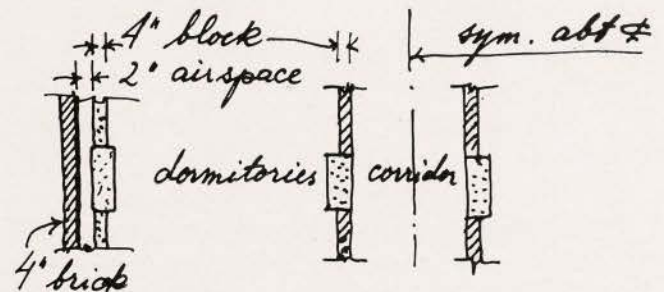 4" block
sym. abt ℄
2" airspace
dormitories
corridor
4" brick